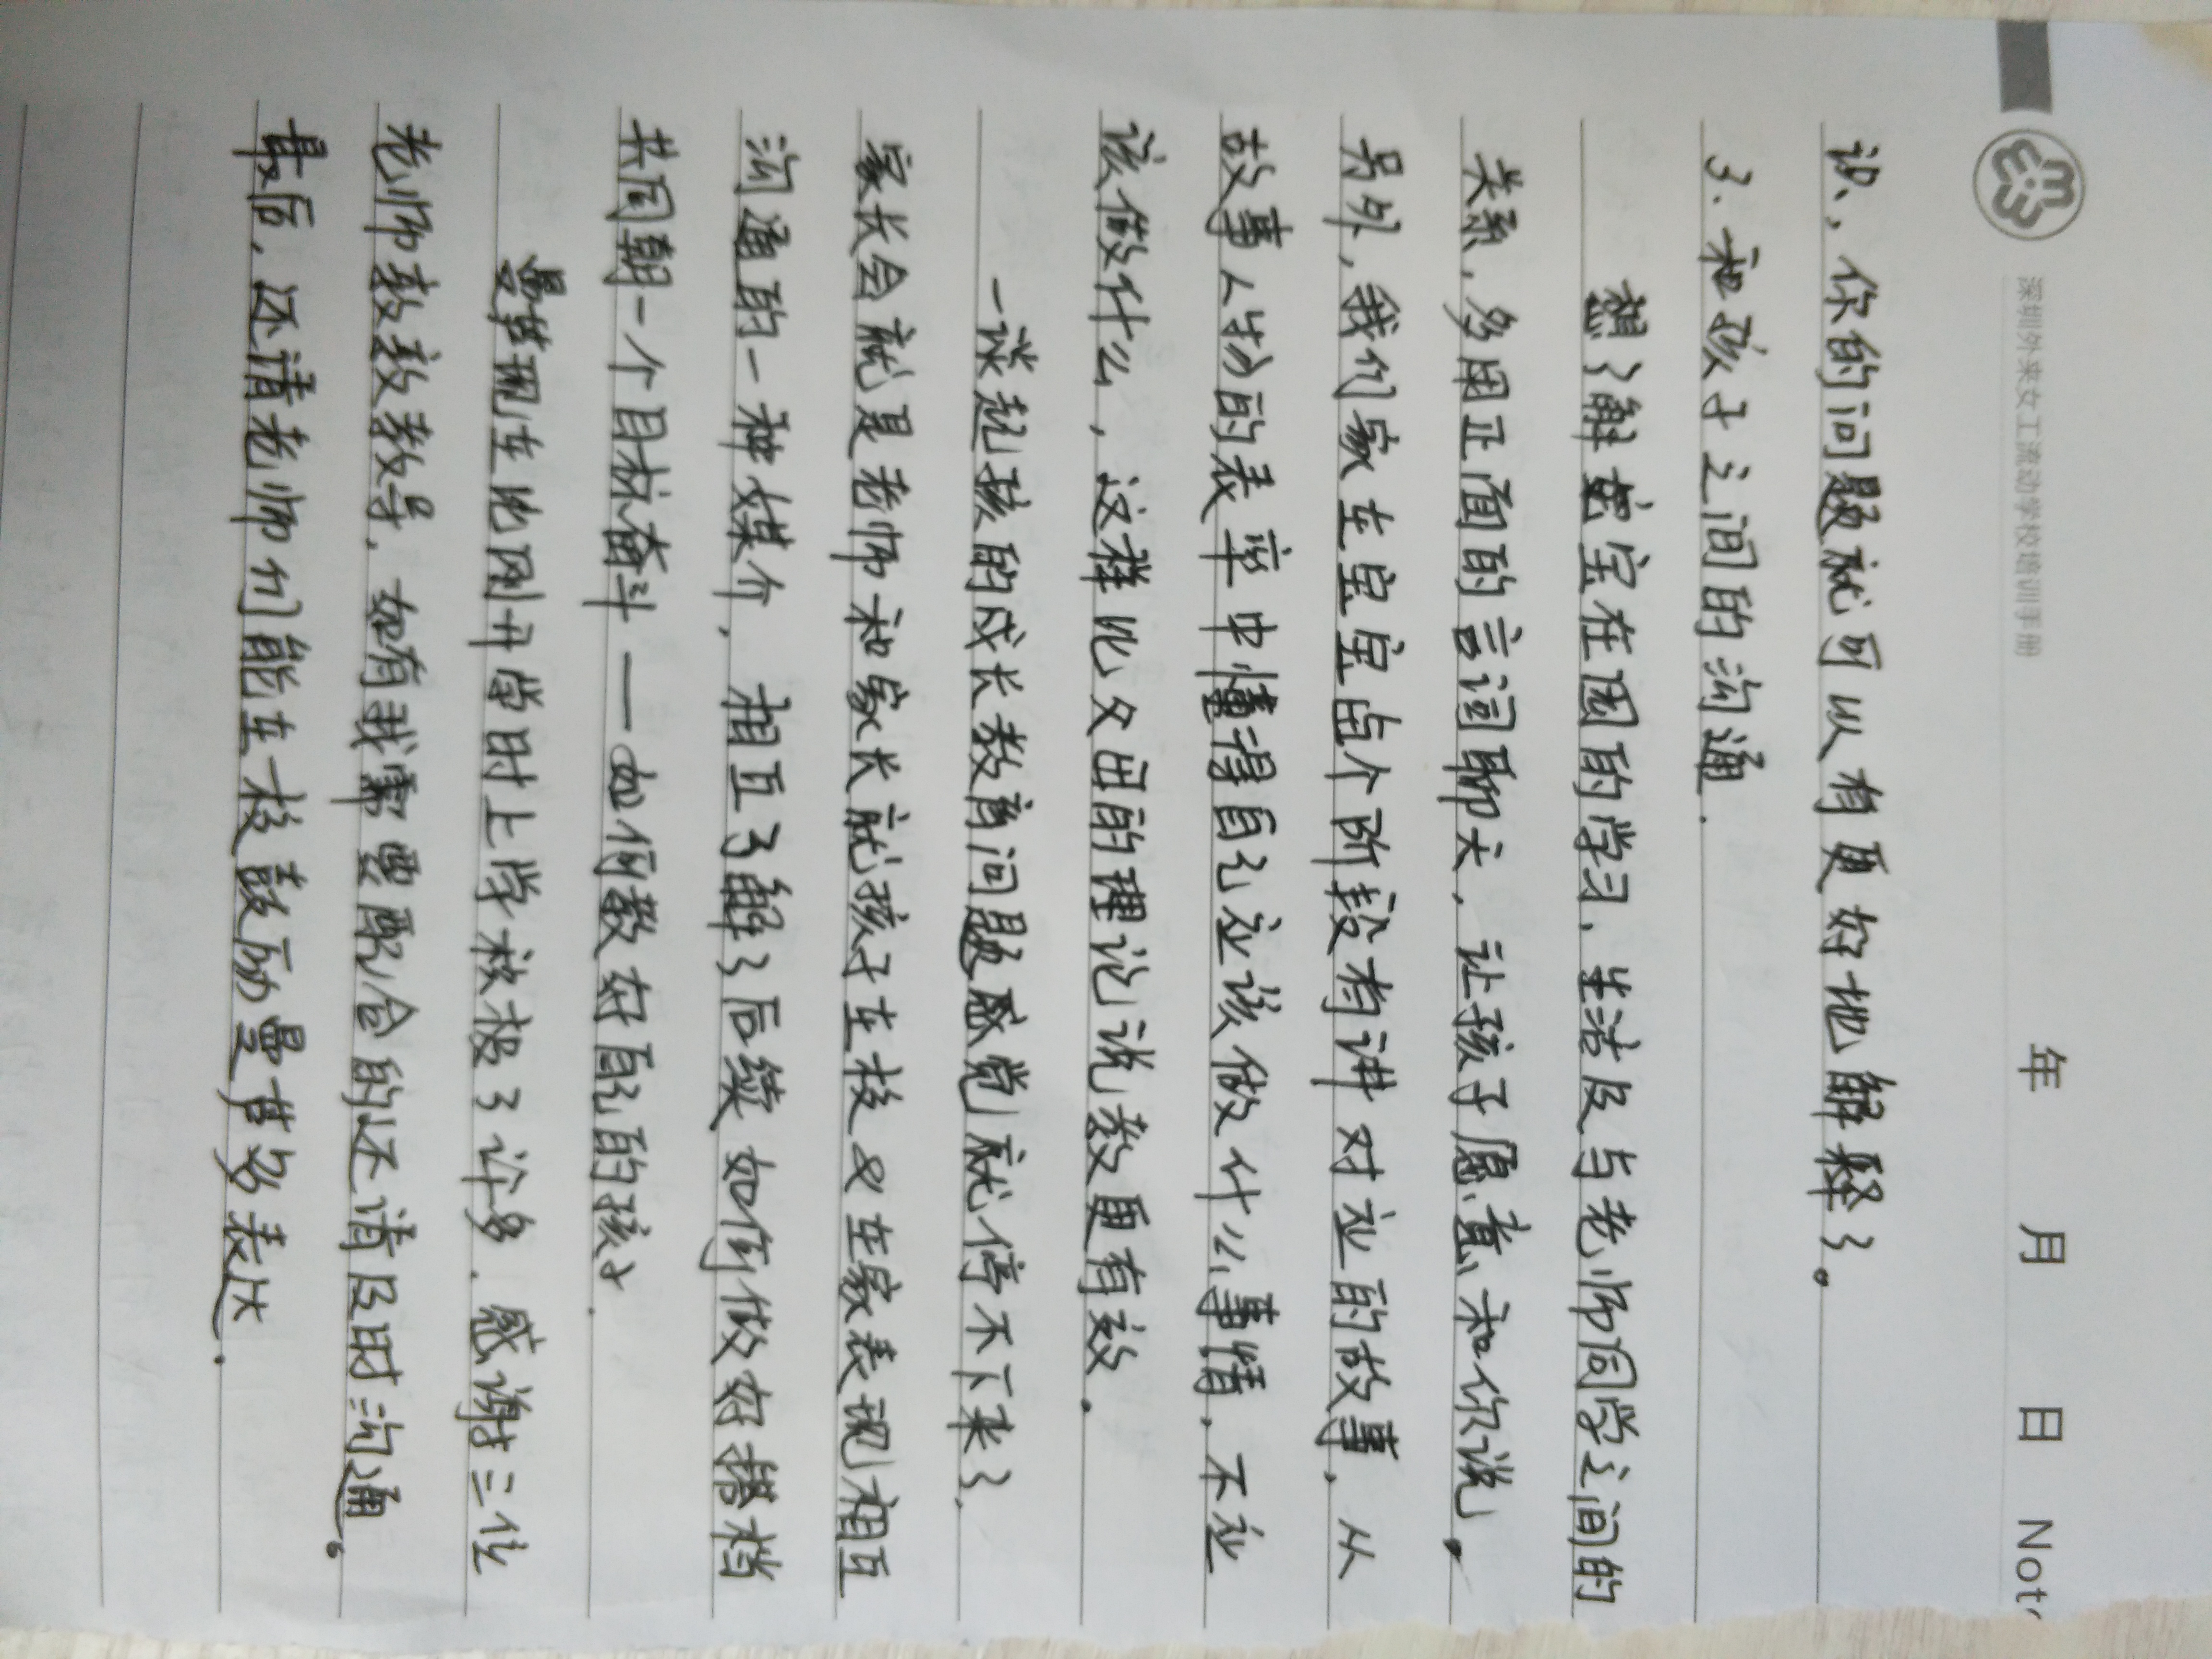 深圳外来女工流动学校培训手册
年 月 日 Not
识,你的问题就可以有更好地解释了。
3. 和孩子之间的沟通.
想了解宝宝在园的学习、生活及与老师同学之间的
关系,多用正面的言词聊天,让孩子愿意和你说。
另外,我们家在宝宝每个阶段有讲对应的故事,从
故事人物的表率中懂得自己应该做什么事情,不应
该做什么,这样比父母的理论说教更有效.
一谈起孩的成长教育问题感觉就停不下来了.
家长会就是老师和家长就孩子在校及在家表现相互
沟通的一种媒介,相互了解了后续如何做好搭档
共同朝一个目标奋斗——如何教好自己的孩子.
曼菲现在比刚开学时上学积极了许多.感谢三位
老师敦敦教导.如有我需要配合的还请及时沟通。
最后,还请老师们能在校鼓励曼菲多表达.